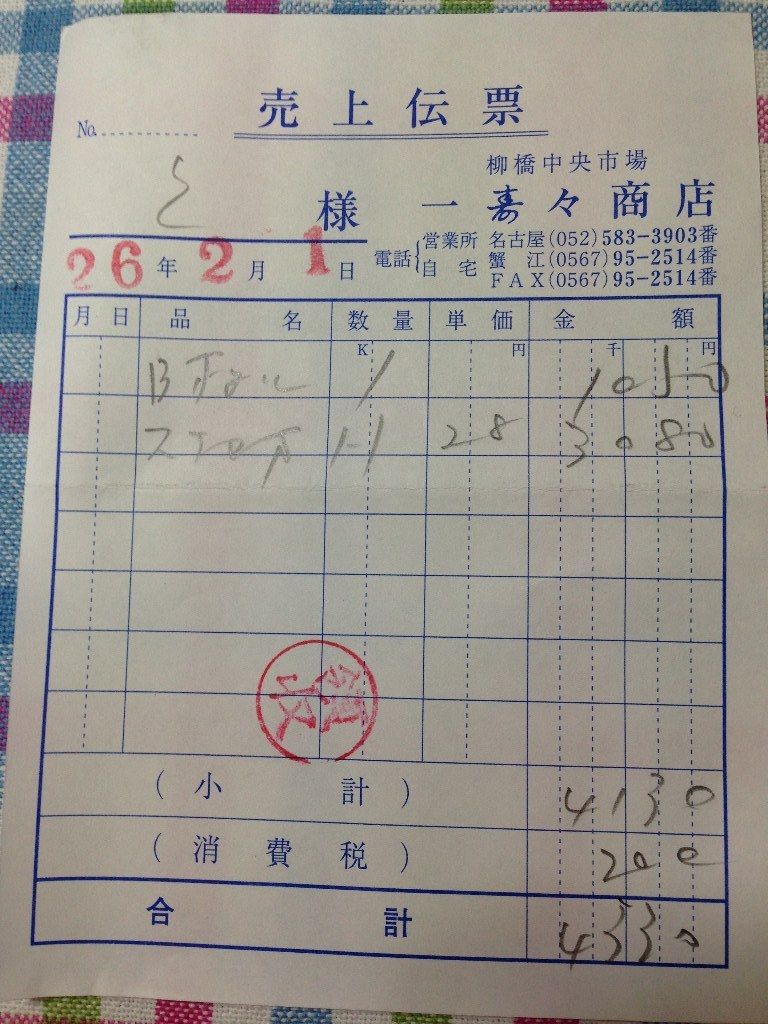 売上伝票
No.
様
柳橋中央市場
一寿々商店
電話 営業所 名古屋(052)583-3903番
自宅 蟹江(0567)95-2514番
FAX(0567)95-2514番
26年2月1日
月 日 品名 数量 単価 金額
K 円 千 円
B 1 1050
28 3080
領収
(小計) 4130
(消費税) 200
合計 4330